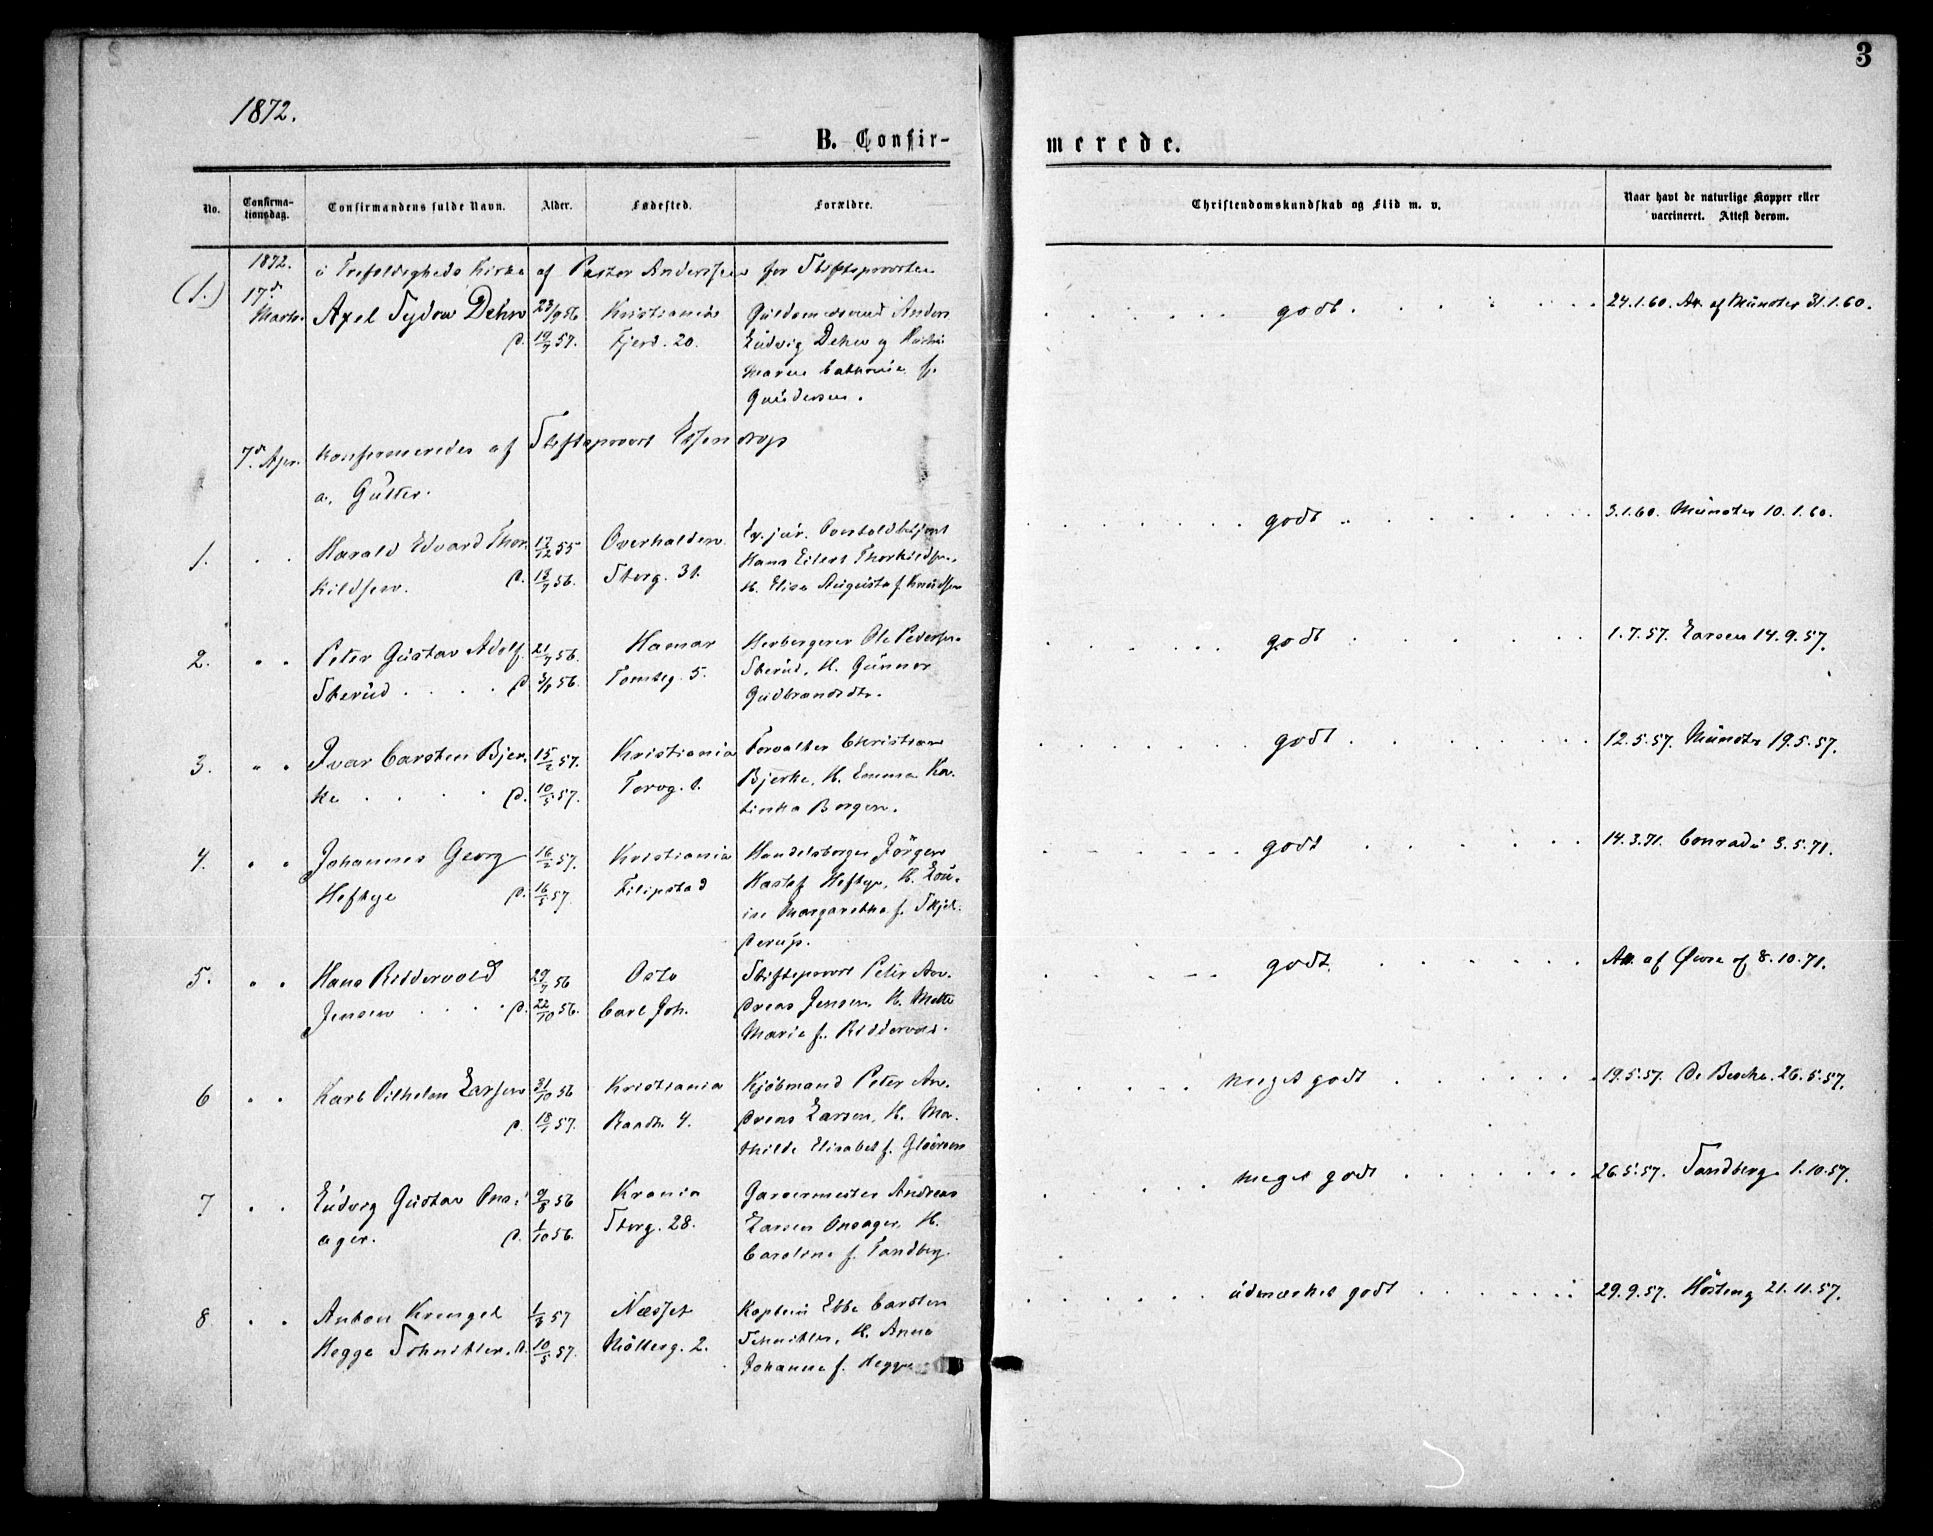 3
1872.
B. Confirmerede.
No.
Confirmationsdag.
Confirmandens fulde Navn.
Alder.
Fødested.
Forældre.
Christendomskundskab og Flid m. v.
Naar havt de naturlige Kopper eller
vaccineret. Attest derom.
1872. i Trefoldigheds Kirke af Pastor Anderssen for Stiftsprovsten
(1.) 17d Marts. Axel Sydow Dehn 23/9 56 Kristiania Anders godt 24.1.60. Att. af Münster 31.1.60.
d. 19/7 57. Fjerd. 20. Ludvig Dehn og
Maren f.
Gundersen.
7d Apr. konfirmeredes af Stiftsprovst Essendrop
a. Gutter.
1. Harald Edvard Thor- 17/12 55 Overhalden Hans Eilert Thorkildsen, godt 3.1.60. Münster 10.1.60.
kildsen. d. 13/7 56. Storg. 31. H. Elise Augusta f. Knudsen
2. Peter Gustav Adolf 21/7 56. Hamar Herbergerer Ole Pedersen godt 1.7.57. Larsen 14.9.57.
Sterud d. 3/8 56. Tomteg. 5. Sterud, H. Gunnor
Gudbrandsdtr.
3. Ivar Carsten Bjer- 15/2 57. Kristiania Forvalter Christian godt 12.5.57. Münster 19.5.57.
ke d. 10/5 57. Torvg. 1. Bjerke, H. Emma Ka-
tinka Borgen.
4. Johannes Georg 16/2 57. Kristiania Handelsborger Jörgen godt 14.3.71. Conradi 3.5.71.
Heftye d. 16/5 57. Filipstad Heftye, H. Lou-
ise Margarethe f. Skjel-
derup.
5. Hans Riddervold 29/9 56 Oslo Stiftsprovst Peter An- godt. Att. af 8.10.71.
Jensen d. 22/10 56. Carl Joh. dreas Jensen, H. Mette
Marie f. Riddervold.
6 Karl Vilhelm Larssen 31/10 56 Kristiania Kjöbmand Peter An- meget godt 19.5.57. De Besche. 26.5.57.
d. 18/1 57. Raadh. 4. dreas Larsen, H. Ma-
thilde Elisabet f.
7 Ludvig Gustav Ons- 9/8 56 Krania Garvermester Andreas meget godt 26.5.57. Sandberg 1.10.57.
ager. d. 1/10 56. Storg. 28. Larsen Onsager, H.
Caroline f. Sandberg.
8. Anton Krengel 1/3 57 Næsset Kaptein Ebbe Carsten udmærket godt 29.9.57. 21.11.57.
Hegge Schnitler. d. 10/5 57. Möllerg. 2. Schnitler, H. Anna
Johanne f. Hegge